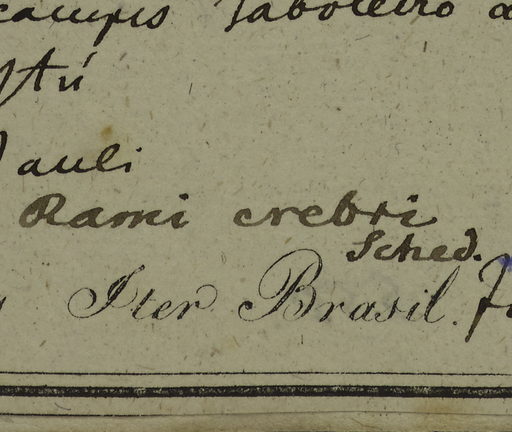 campis Taboleiro
Ytú
Pauli
Rami crebri
Sched.
Iter Brasil.